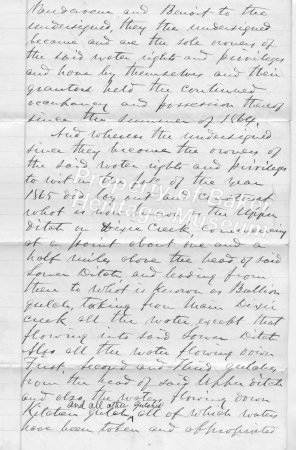 and Benoit to the
undersigned, they the undersigned
become and are the sole owners of
the said water rights and privileges
and have by themselves and their
grantors held the continued
occupancy and possession thereof
since the summer of 1864.
And whereas the undersigned
since they become the owners of
the said water rights and privileges
to wit in the fall of the year
1865 did lay out and construct
what is now the Upper
ditch on Dixie Creek, commencing
at a point about one and a
half miles above the head of said
Lower Ditch and leading from
there to what is known as Bullion
gulch, taking from Main Dixie
creek all the water except that
flowing into said Lower Ditch
Also all the water flowing down
First, second and third gulches
from the head of said Upper ditch
and also the waters flowing down
and all other gulches
Kitchen gulch, all of which waters
have been taken and appropriated
Property of Baker
Heritage Museum